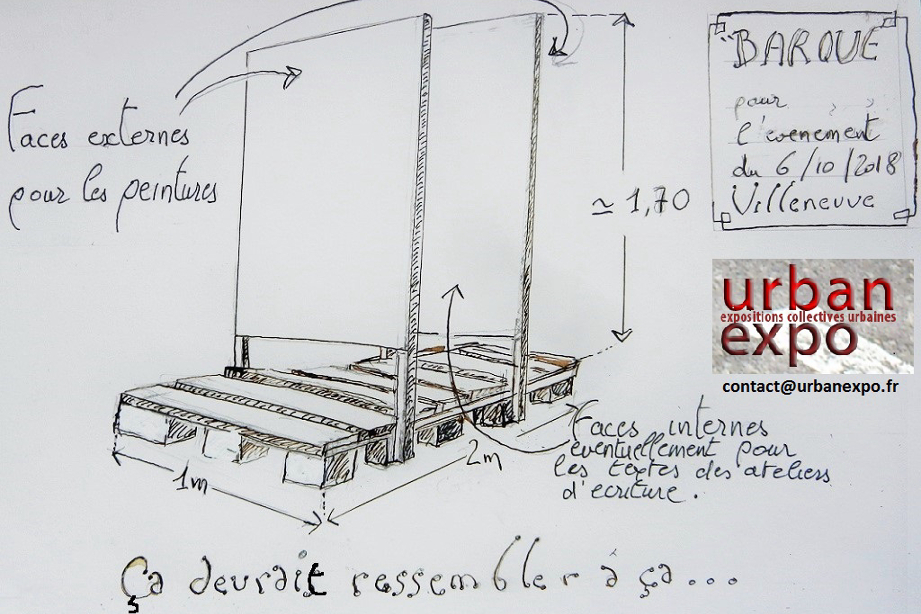 Faces externes
pour les peintures
"BARQUE"
pour
l'évènement
du 6/10/2018
Villeneuve
≃ 1,70
urban
expositions collectives urbaines
expo
contact@urbanexpo.fr
Faces internes
éventuellement pour
les textes des ateliers
d'ecriture.
1m
2m
Ça devrait ressembler à ça...